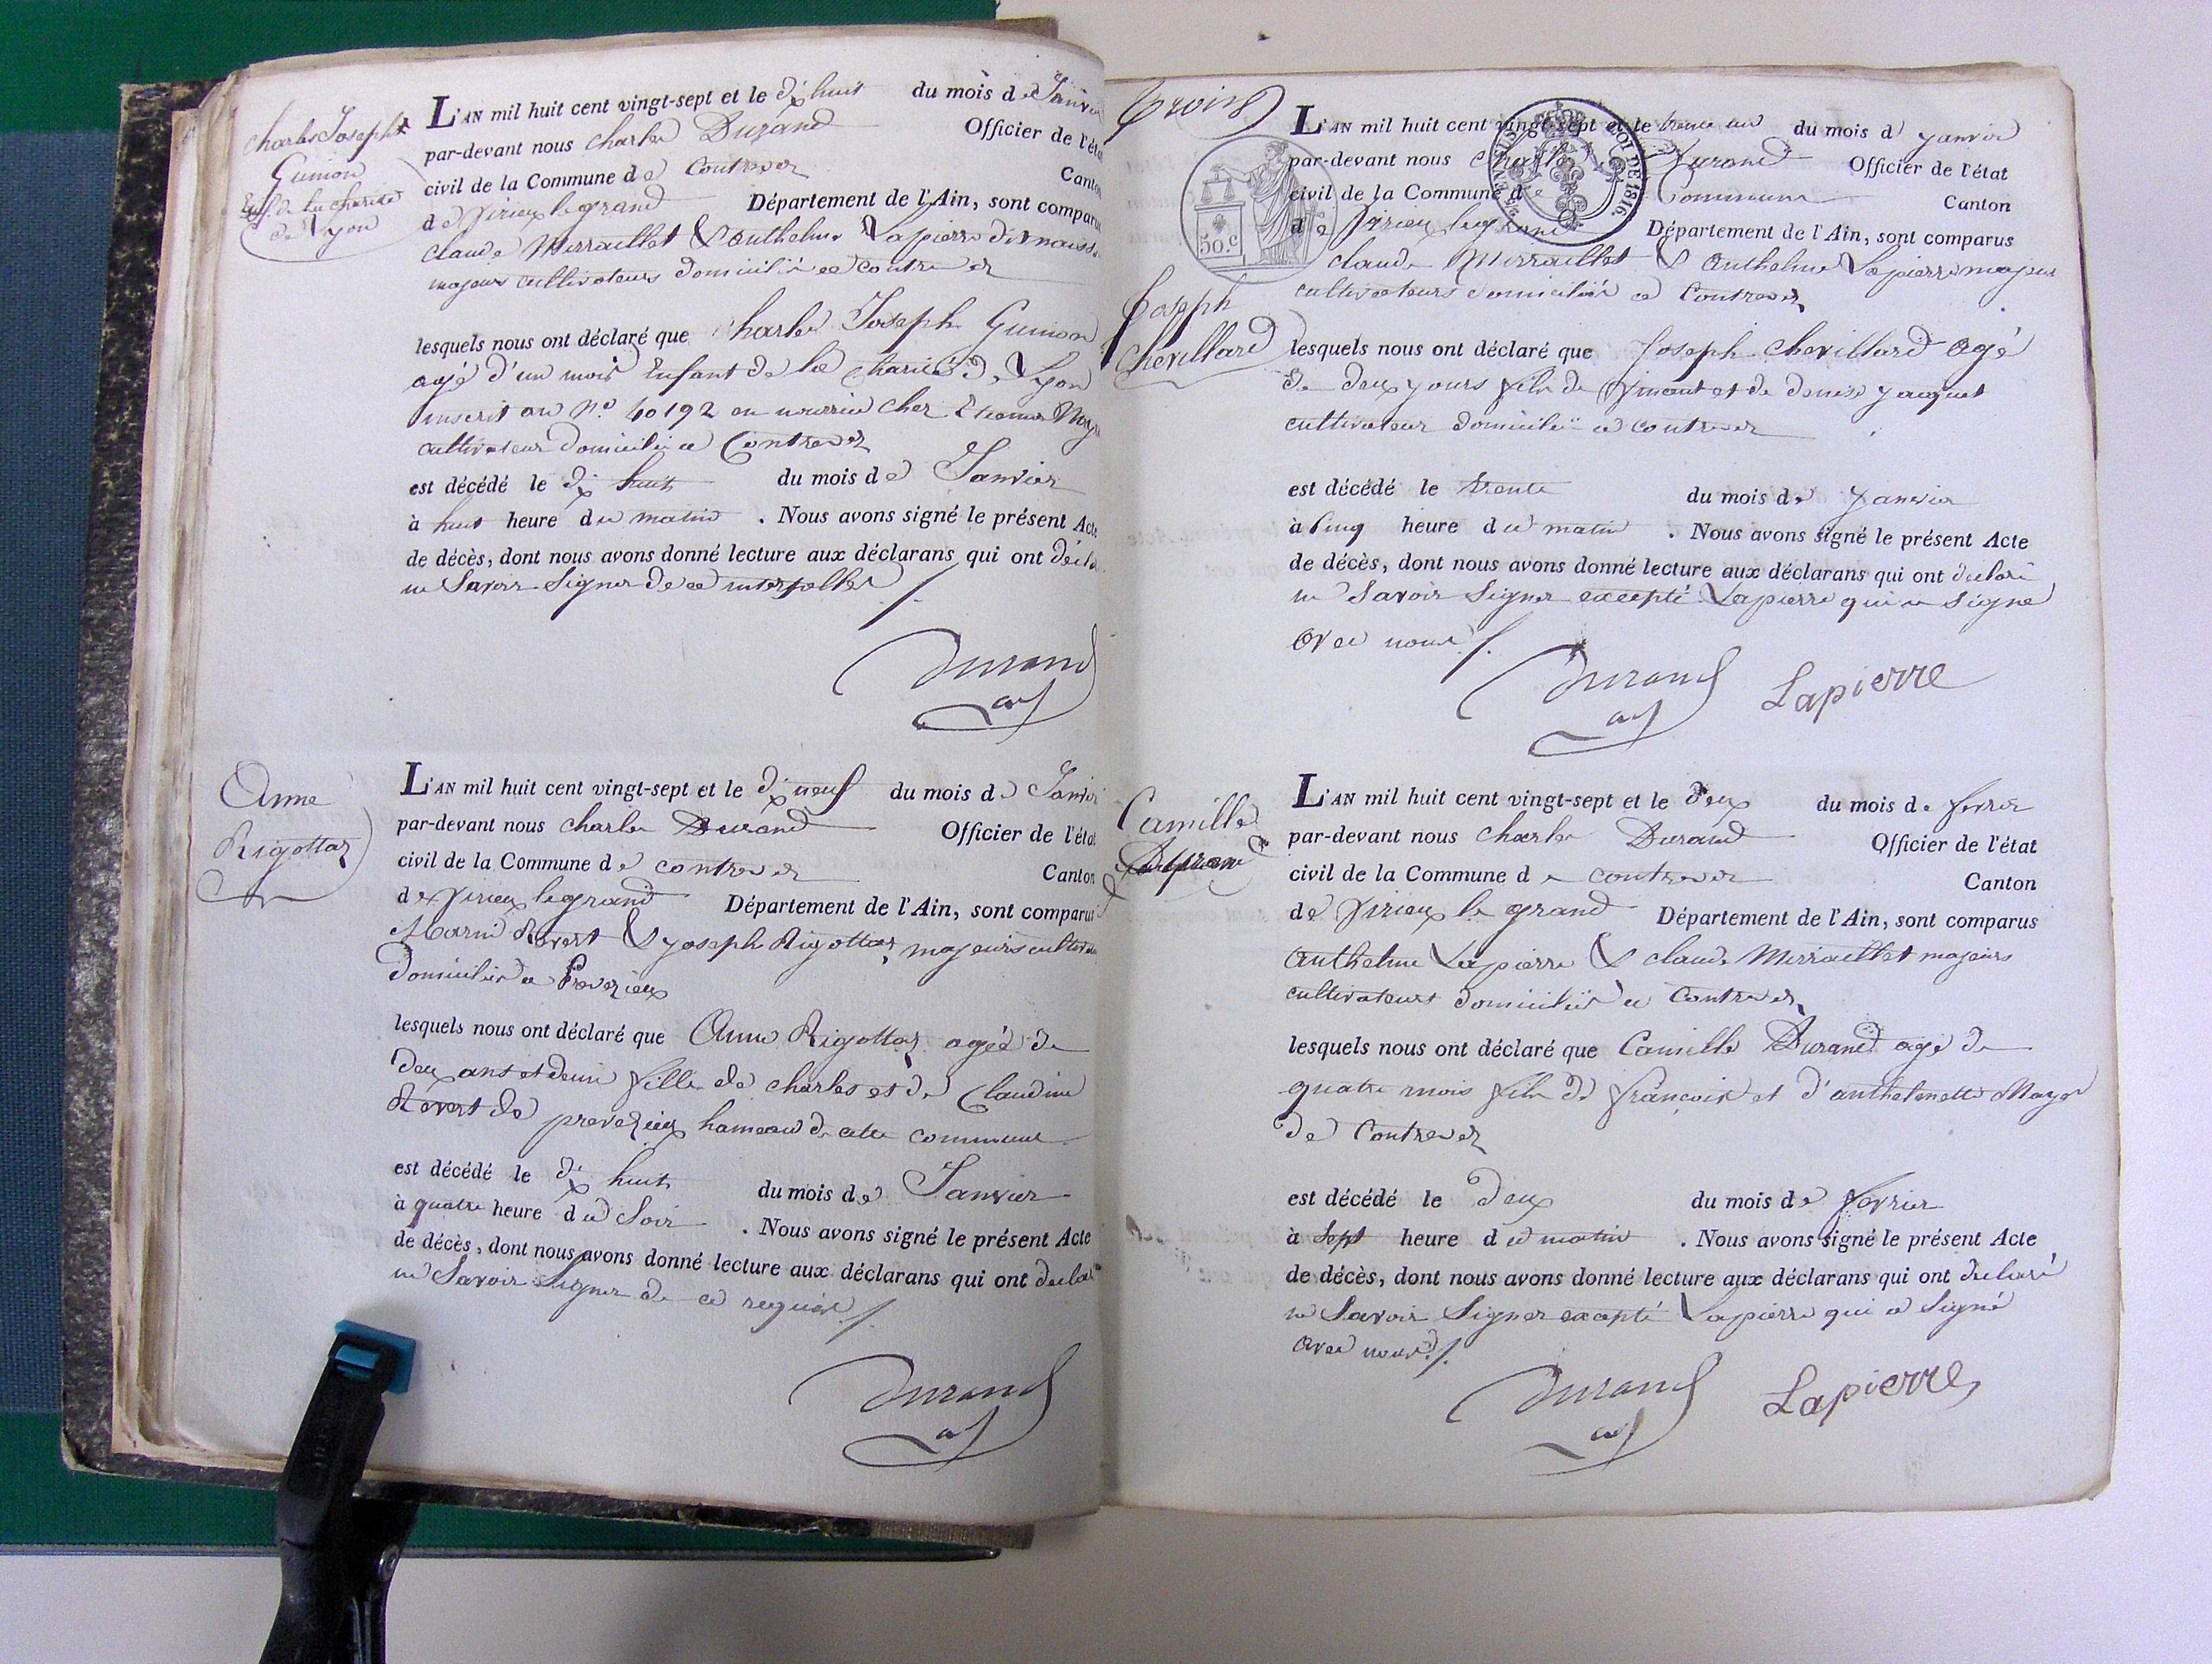 Charles Joseph
Guinion
Enf. de la charité
de Lyon
L'AN mil huit cent vingt-sept et le dix huit du mois de Janvier
par-devant nous charles Durand Officier de l'état
civil de la Commune de Contrevoz Canton
de Virieu le grand Département de l'Ain, sont comparus
claude Merraillet & Anthelme Lapierre dit
majeurs cultivateurs domiciliés a contrevoz
lesquels nous ont déclaré que Charles Joseph Guinion
agé d'un mois Enfant de la charité de Lyon
inscrit au N.o 40192 en nourrice chez Etienne
cultivateur domicilié a Contrevoz
est décédé le dix huit du mois de Janvier
à huit heure du matin . Nous avons signé le présent Acte
de décès, dont nous avons donné lecture aux déclarans qui ont déclaré
ne Savoir Signer de ce interpellés /.
Durand
Anne
Rigottaz
L'AN mil huit cent vingt-sept et le dix neuf du mois de Janvier
par-devant nous charles Durand Officier de l'état
civil de la Commune de contrevoz Canton
de Virieu le grand Département de l'Ain, sont comparus
Marin Revert & joseph Rigottaz majeurs
Domiciliés a Preveyzieux
lesquels nous ont déclaré que Anne Rigottaz agée de
deux ans et demi fille de charles et de Claudine
Revert de preveyzieux hameau de cette commune
est décédé le dix huit du mois de Janvier
à quatre heure du Soir . Nous avons signé le présent Acte
de décès, dont nous avons donné lecture aux déclarans qui ont declaré
ne Savoir Signer de ce requis /.
Durand
Trois
Joseph
Chevillard
50.c
LOI DE 1816.
L'AN mil huit cent vingt-sept et le trente un du mois d' janvier
par-devant nous charles Durand Officier de l'état
civil de la Commune de Commune Canton
de Virieu le grand Département de l'Ain, sont comparus
claude Merraillet & Anthelme Lapierre majeurs
cultivateurs domiciliés a Contrevoz
lesquels nous ont déclaré que Joseph Chevillard agé
de deux jours fils de Vincent et de denise jacquet
cultivateur domicilié a contrevoz
est décédé le trente du mois de janvier
à Cinq heure du matin . Nous avons signé le présent Acte
de décès, dont nous avons donné lecture aux déclarans qui ont declaré
ne Savoir Signer excepté Lapierre qui a signé
avec nous /.
Durand Lapierre
Camille
L'AN mil huit cent vingt-sept et le deux du mois de fevrier
par-devant nous charles Durand Officier de l'état
civil de la Commune de contrevoz Canton
de Virieu le grand Département de l'Ain, sont comparus
Anthelme Lapierre & claude Merraillet majeurs
cultivateurs domiciliés a Contrevoz
lesquels nous ont déclaré que Camille Durand agé de
quatre mois fils de françois et d'anthelmette
de Contrevoz
est décédé le deux du mois de fevrier
à Sept heure du matin . Nous avons signé le présent Acte
de décès, dont nous avons donné lecture aux déclarans qui ont declaré
ne Savoir Signer excepté Lapierre qui a Signé
avec nous /.
Durand Lapierre